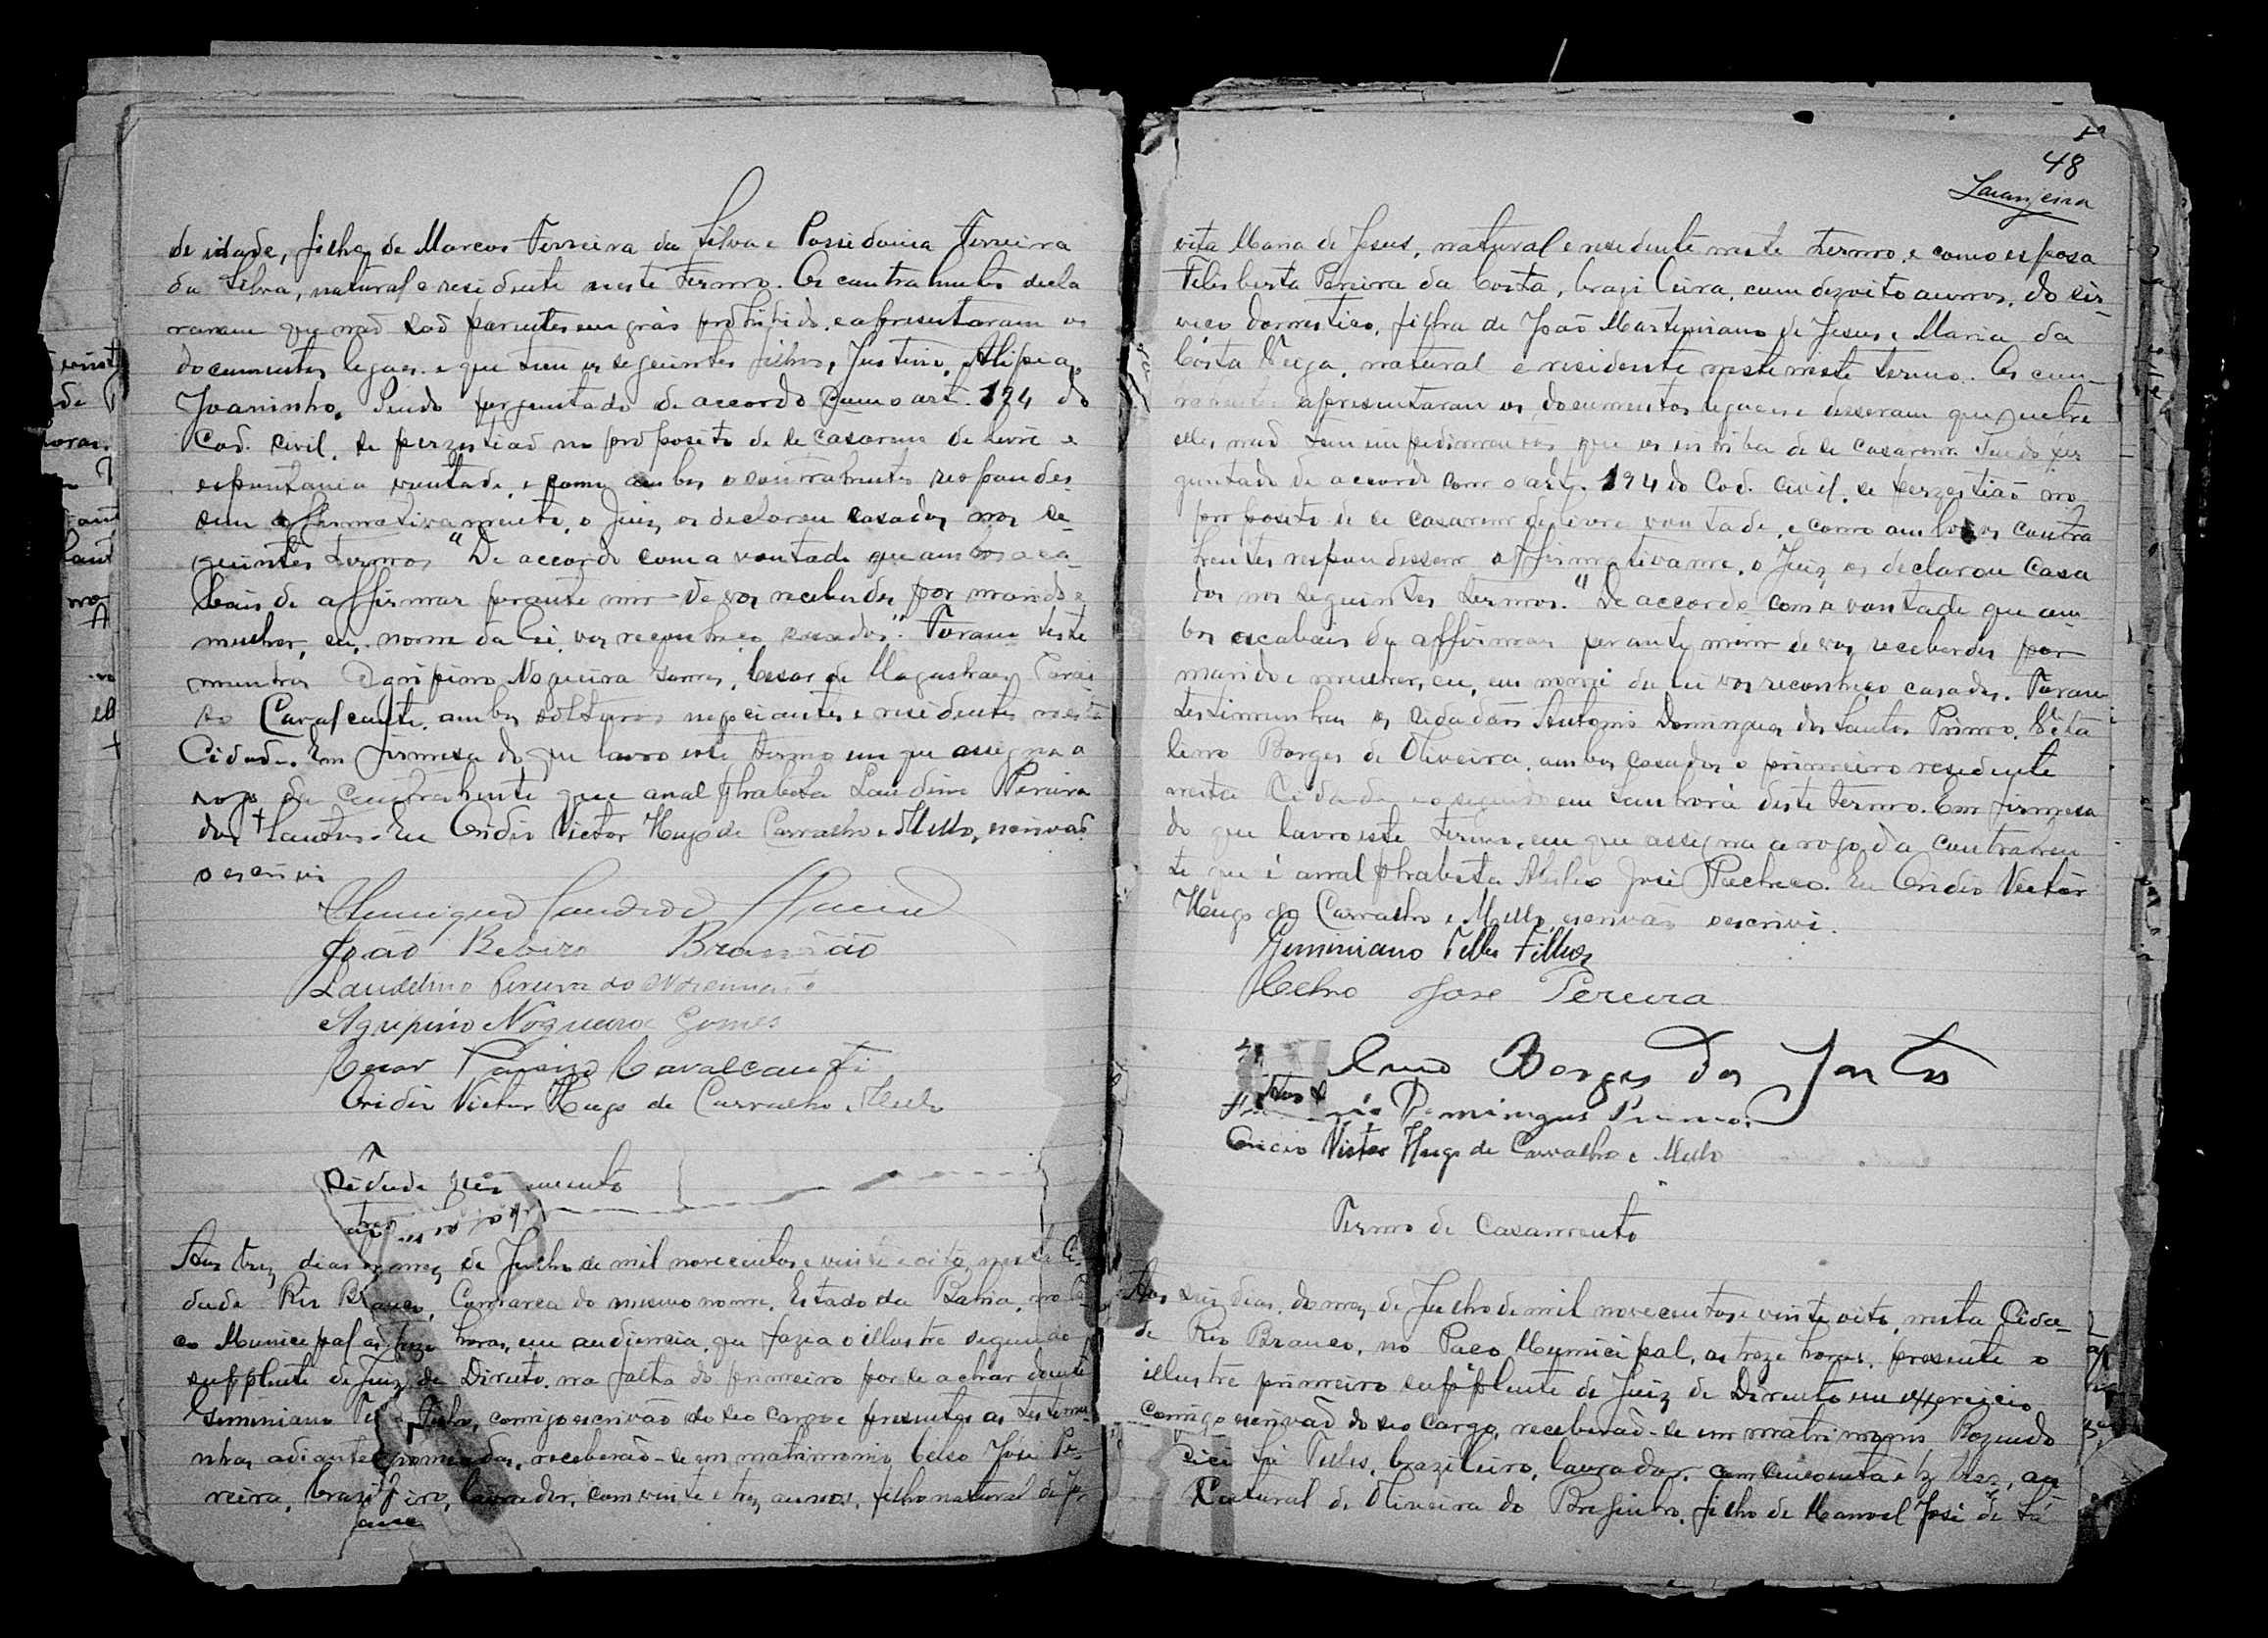 de idade, filha de Marcos Ferreira da Silva e Possidonia Ferreira
da Silva, natural e residente neste termo. Os contrahentes decla
raram que não são parentes em gráo prohibido, e apresentaram os
documentos legaes e que tem os seguintes filhos, Justino, Alipia,
Joaninho. Sendo perguntado de accordo com o art. 194 do
Cod. Civil, se perzistião no proposito de se casarem de livre e
espontania vontade, e como ambos o contrahentes responde
sem affirmativamente, o Juiz os declarou casados nos se-
guintes termos "De accordo com a vontade que ambos aca-
bais de affirmar perante mim de vos receberdes por marido e
mulher, eu, nome da lei, vos reconheço casados". Foram teste
munhas Agripino Nogueira Gomes, Cesar de Magalhães Parai
so Cavalcante, ambos solteiros negociantes e residentes nesta
Cidade. Em firmesa do que lavro este termo em que assigna a
rogo da contrahente que analphabeta Laudino Pereira
dos Santos. Eu Ovidio Victor Hugo de Carvalho e Mello, escrivão
o escrivi
João Brandão
Laudelino Pereira do
Agripino Nogueira Gomes
Cesar Paraizo Cavalcanti
Ovidio Victor Hugo de Carvalho e Mello
Aos trez dias do mez de Julho de mil novecentos e vinte e oito, nesta Ci-
dade Rio Branco, Comarca do mesmo nome, Estado da Bahia, no Pa
ço Municipal as treze horas, em audiencia, que fazia o illustre segundo
supplente de Juiz de Direito, na falta do primeiro por se achar doente
Geminiano Filho, comigo escrivão do seo cargo e presentes as testemu
nhas adiante nomeadas, receberão-se em matrimonio Celso José Pe-
reira, brazileiro, lavrador, com vinte e trez annos, filho natural de
48
Laranjeira
vita Maria de Jesus, natural e residente neste termo, e como esposa
Filisberta Pereira da Costa, brazileira, com dezoito annos, do ser-
viço domestico, filha de João Martiniano de Jesus e Maria da
Costa Veiga, natural e residente neste neste termo. Os con-
apresentaram os documentos legaes e disseram que entre
elles não tem impedimentos que os iniba de se casarem. Sendo per
guntado de accordo com o art. 194 do Cod. Civil, se perzestião no
proposito de se casarem de livre vontade, e como ambos os contra
hentes respondessem affirmativame, o Juiz os declarou casa
dos nos seguintes termos. "De accordo com a vontade que am
bos acabais de affirmar perante mim de vos receberdes por
marido e mulher, eu, em nome da lei vos reconheço casados. Foram
testimunhas os cidadãos Antonio Domingues dos Santos Primo, Vita
lino Borges de Oliveira, ambos casados o primeiro residente
nesta Cidade e o segundo em deste termo. Em firmesa
do que lavro este termo, em que assigna a rogo da contrahen
te que é analphabeta José Pacheco. Eu Ovidio Victor
Hugo de Carvalho e Mello, escrivão o escrivi.
Geminiano Telles Filho
Celso José Pereira
Borges dos Santos
Domingues Primo
Ovidio Victor Hugo de Carvalho e Mello
Termo de Casamento
Aos seis dias do mez de Julho de mil novecentos e vinte oito, nesta Cida-
de Rio Branco, no Paço Municipal, as treze horas, presente o
illustre primeiro supplente de Juiz de Direito em exercicio
comigo escrivão do seo cargo, receberão-se em matrimonio Rozendo
Telles, brazileiro, lavrador, com cincoenta e trez, an
natural de Oliveira do Brejinho, filho de Manoel José de Sá